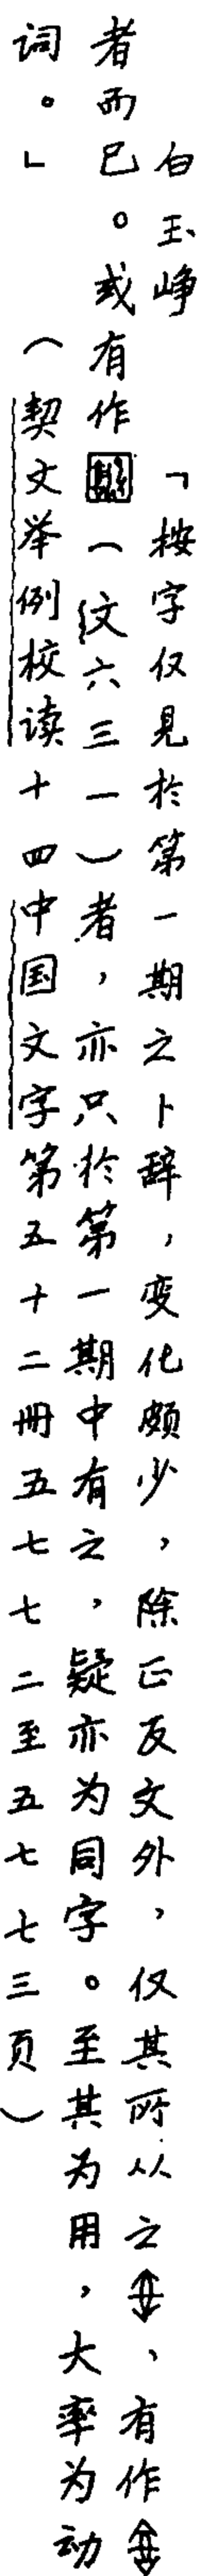 白玉峥 「按字仅見於第一期之卜辞，变化颇少，除正反文外，仅其所从之，有作
者而已。或有作（文六三一）者，亦只於第一期中有之，疑亦为同字。至其为用，大率为动
词。」 （契文举例校读十四中国文字第五十二册五七七二至五七七三页）